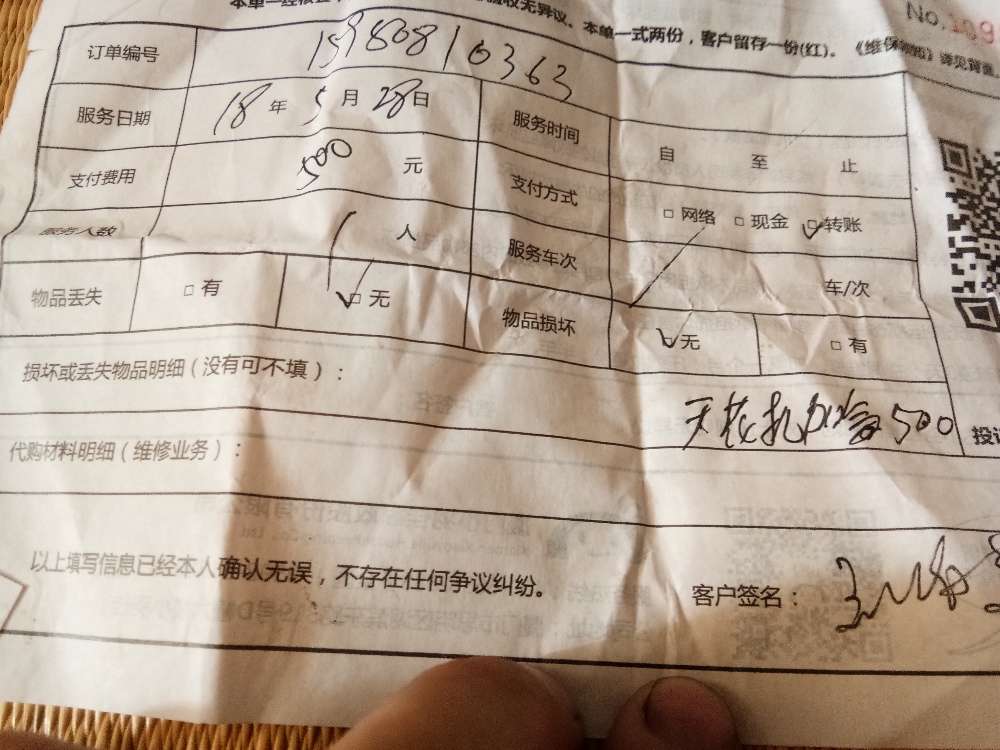 验收无异议。本单一式两份，客户留存一份(红)。
No.
订单编号 15980810363
服务日期 18年5月28日 服务时间 自 至 止
支付费用 500元 支付方式 □网络 □现金 □转账
人 服务车次 车/次
物品丢失 □有 □无 物品损坏 无 □有
损坏或丢失物品明细（没有可不填）：
500
代购材料明细（维修业务）：
以上填写信息已经本人确认无误，不存在任何争议纠纷。
客户签名：